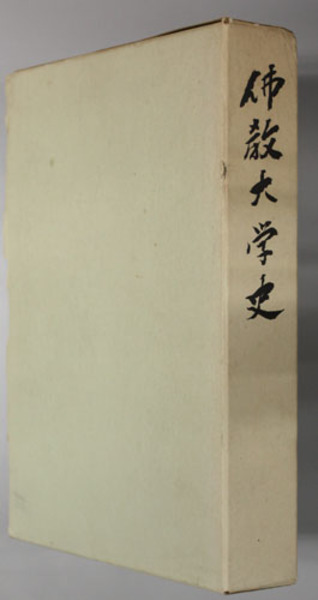 佛教大学史